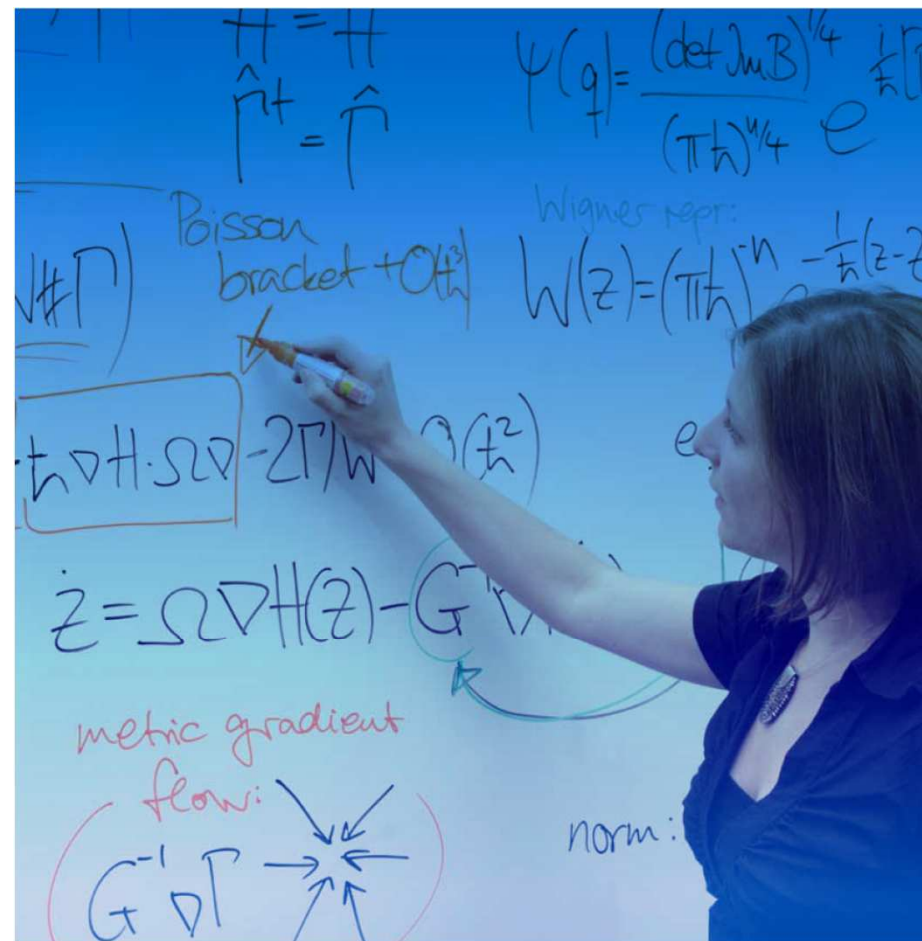 Ĥ† = Ĥ
Γ̂† = Γ̂
ψ(q) = (det Im B)^{1/4} / (πħ)^{n/4} e^{i/ħ[
Poisson
bracket + O(ħ³)
Wigner repr:
W#Γ)
W(z) = (πħ)^{-n} e^{-1/ħ(z-z
ħ∇H·Ω∇ -2Γ)W O(ħ²)
e
ż = Ω∇H(z) - G⁻¹∇
metric gradient
flow:
G⁻¹∇Γ
norm: